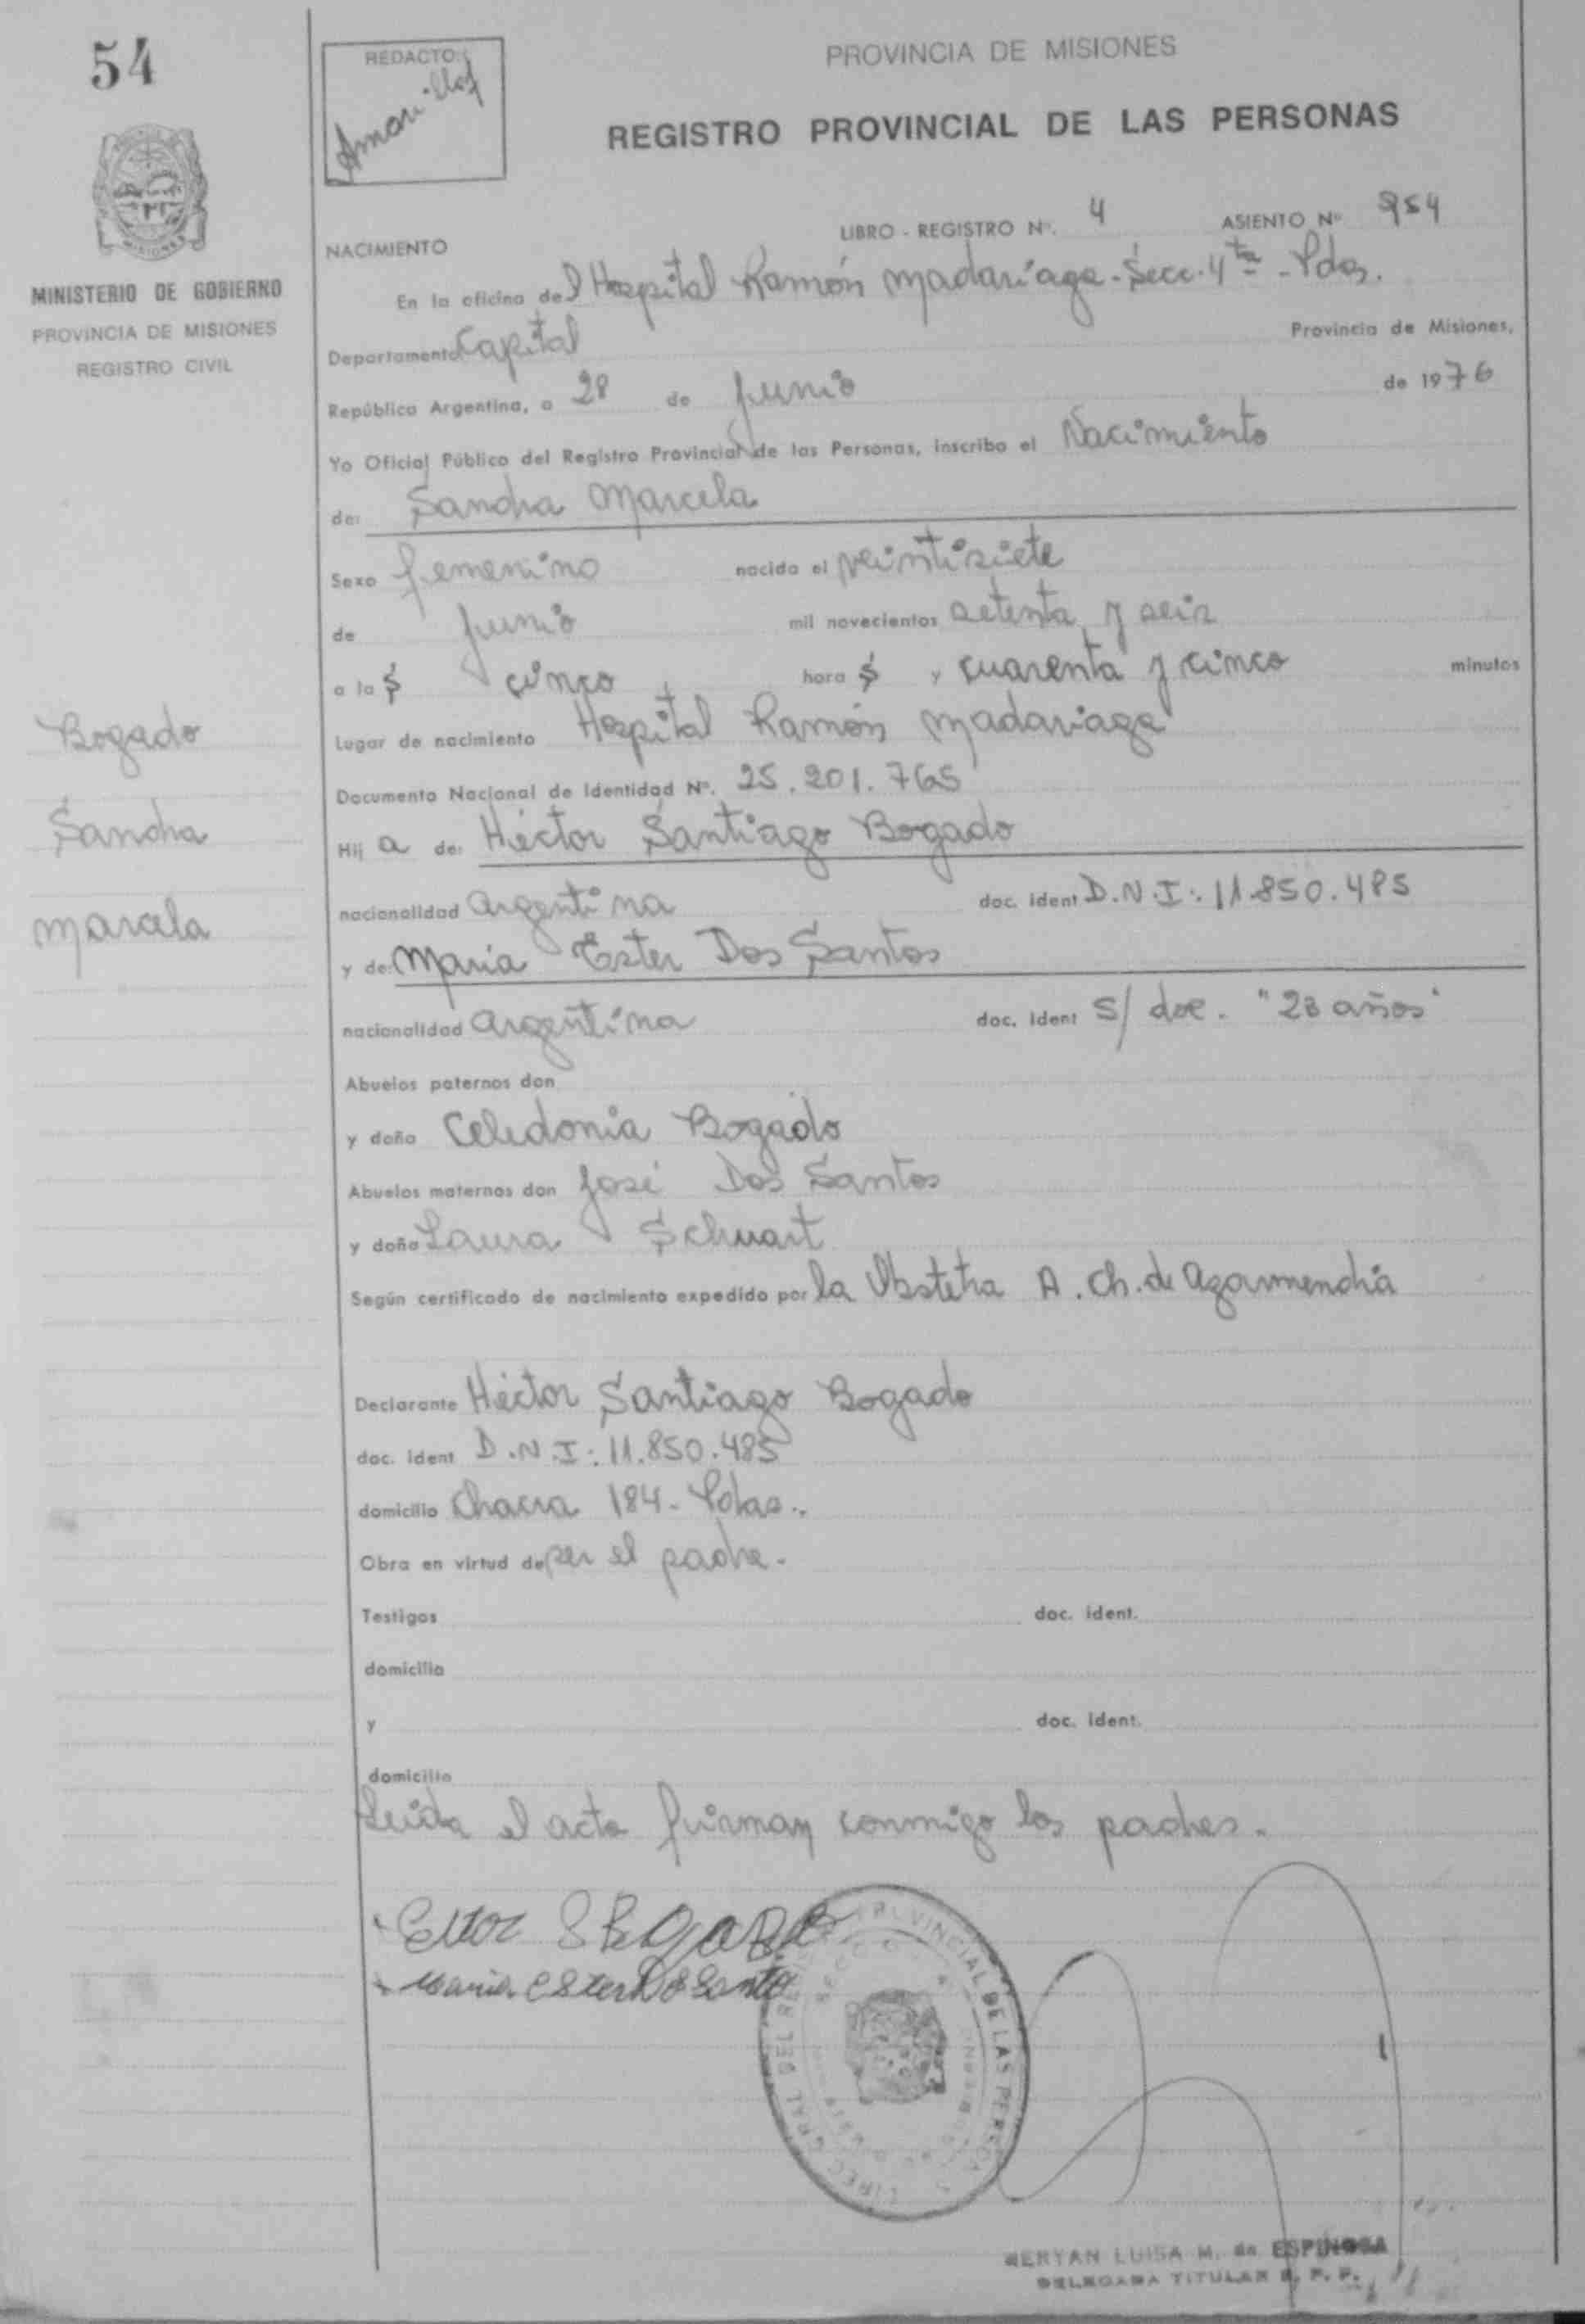 54
REDACTO:
PROVINCIA DE MISIONES
REGISTRO PROVINCIAL DE LAS PERSONAS
MINISTERIO DE GOBIERNO
PROVINCIA DE MISIONES
REGISTRO CIVIL
NACIMIENTO LIBRO - REGISTRO Nº. 4 ASIENTO Nº 954
En la oficina del Hospital Ramón Madariaga - Secc. 4ta - Pdas.
Departamento Capital Provincia de Misiones,
República Argentina, a 28 de Junio de 1976
Yo Oficial Público del Registro Provincial de las Personas, inscribo el Nacimiento
de: Sandra Marcela
Sexo femenino nacido el veintisiete
de Junio mil novecientos setenta y seis
a las cinco horas y cuarenta y cinco minutos
Lugar de nacimiento Hospital Ramón Madariaga
Documento Nacional de Identidad Nº. 25.201.765
Hij a de: Héctor Santiago Bogado
nacionalidad argentina doc. ident D.N.I: 11.850.485
y de: María Ester Dos Santos
nacionalidad argentina doc. ident S/ doc. "23 años"
Abuelos paternos don
y doña Celedonia Bogado
Abuelos maternos don José Dos Santos
y doña Laura Schuart
Según certificado de nacimiento expedido por la Obstetra A. Ch. de
Declarante Héctor Santiago Bogado
doc. ident D.N.I: 11.850.485
domicilio Chacra 184 - Pdas.
Obra en virtud de ser el padre.
Testigos doc. ident.
domicilio
y doc. ident.
domicilio
Leida el acta firman conmigo los padres.
Bogado
Sandra
Marcela
Ector S Bogado
Maria Ester Do Santo
PROVINCIAL DE LAS PERSONAS
LUISA M. de ESPINOSA
DELEGADA TITULAR R. P. P.